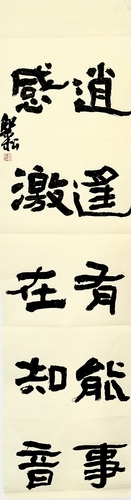 逍遙有能事
感激在知音